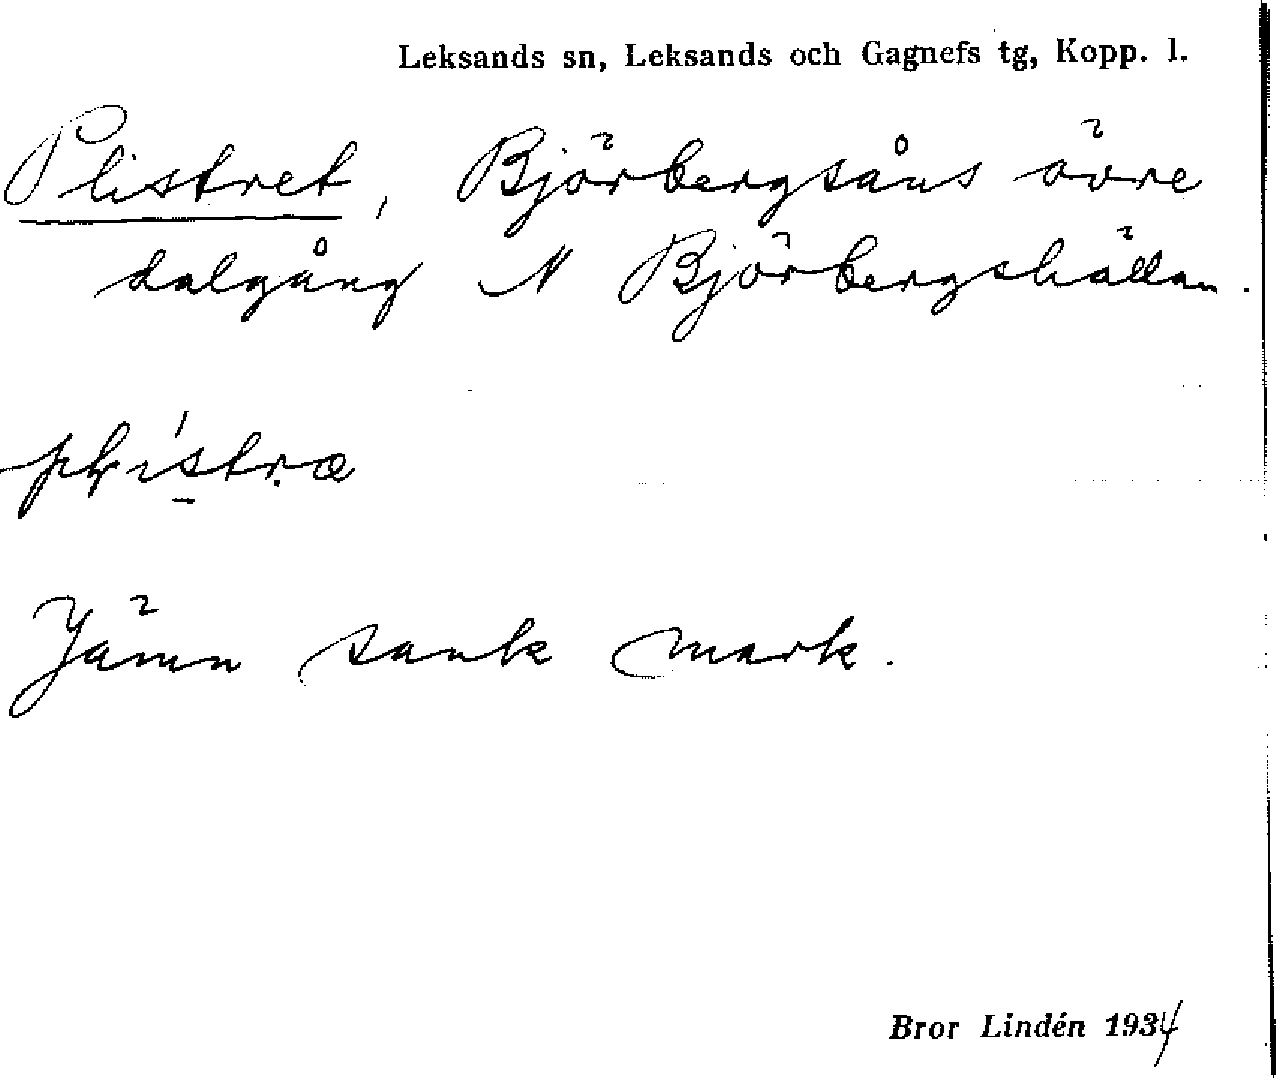 Leksands sn, Leksands och Gagnefs tg, Kopp. l.
Plistret, Björbergsåns övre
dalgång N Björbergshällan.
Jämn sank mark.
Bror Lindén 1934